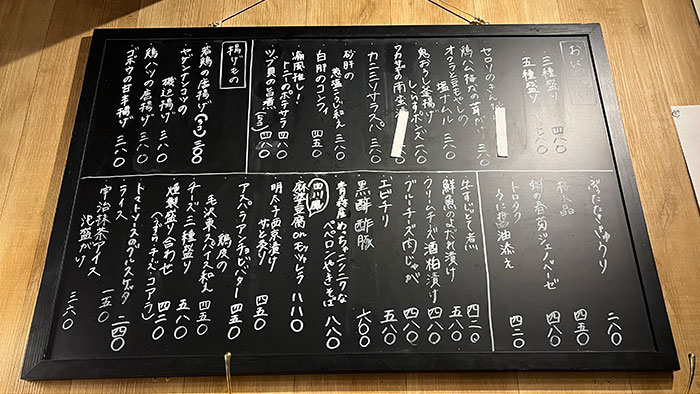 三種盛り 四八〇
五種盛り 七八〇
セロリのきんぴら 三八〇
鶏ハム梅なめ茸がけ 三八〇
オクラと豆もやしの
塩ナムル 三八〇
鬼おろし釜揚げ
しらすポンズ 四八〇
カニミソサラスパ 三八〇
砂肝の
葱塩ぶっかけ和え 三八〇
白肝のコンフィ 四五〇
痛風推し!
トニーのポテサラ 四八〇
ツブ貝の旨煮(5コ) 四八〇
揚げもの
若鶏の唐揚げ(5コ) 五〇〇
ヤゲンナンコツの
磯辺揚げ 三八〇
鶏ハツの唐揚げ 三八〇
ゴボウの甘辛揚げ 三八〇
二八〇
四五〇
鯛の香草ジェノベーゼ 四八〇
トロタク
うに醤油添え 四二〇
牛すじとて煮 四二〇
鮮魚のよだれ漬け 五八〇
クリームチーズ酒粕漬け 四八〇
ブルーチーズ肉じゃが 四八〇
エビチリ
黒酢酢豚 六八〇
青森産めっちゃニンニクな
ペペロンやきそば 八八〇
四川風
麻婆豆腐onモッツァレラ 八八〇
明太子西京漬け
サッと炙り 四五〇
アスパラアンチョビバター 五八〇
鶏皮の
毛沢東スパイス和え 四五〇
チーズ三種盛り 五八〇
燻製盛り合わせ 四二〇
(うずら・チーズ・コアラ)
トマトソースのブルスケッタ 二四〇
ライス 一五〇
宇治抹茶アイス
泡盛がけ 三八〇